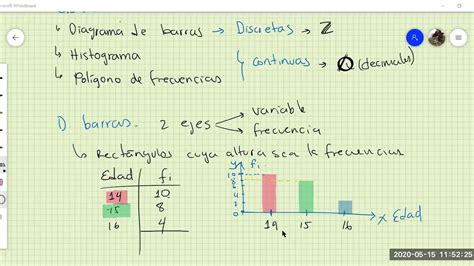 Microsoft Whiteboard
↳ Diagrama de barras → Discretas → Z
↳ Histograma
↳ Polígono de frecuencias
continuas → Q (decimales)
D. barras. 2 ejes
variable
frecuencia
↳ Rectángulos cuya altura sea la frecuencias
Edad fi
14 10
15 8
16 4
y fi
10
8
6
4
2
0
19 15 16
x Edad
2020-05-15 11:52:25